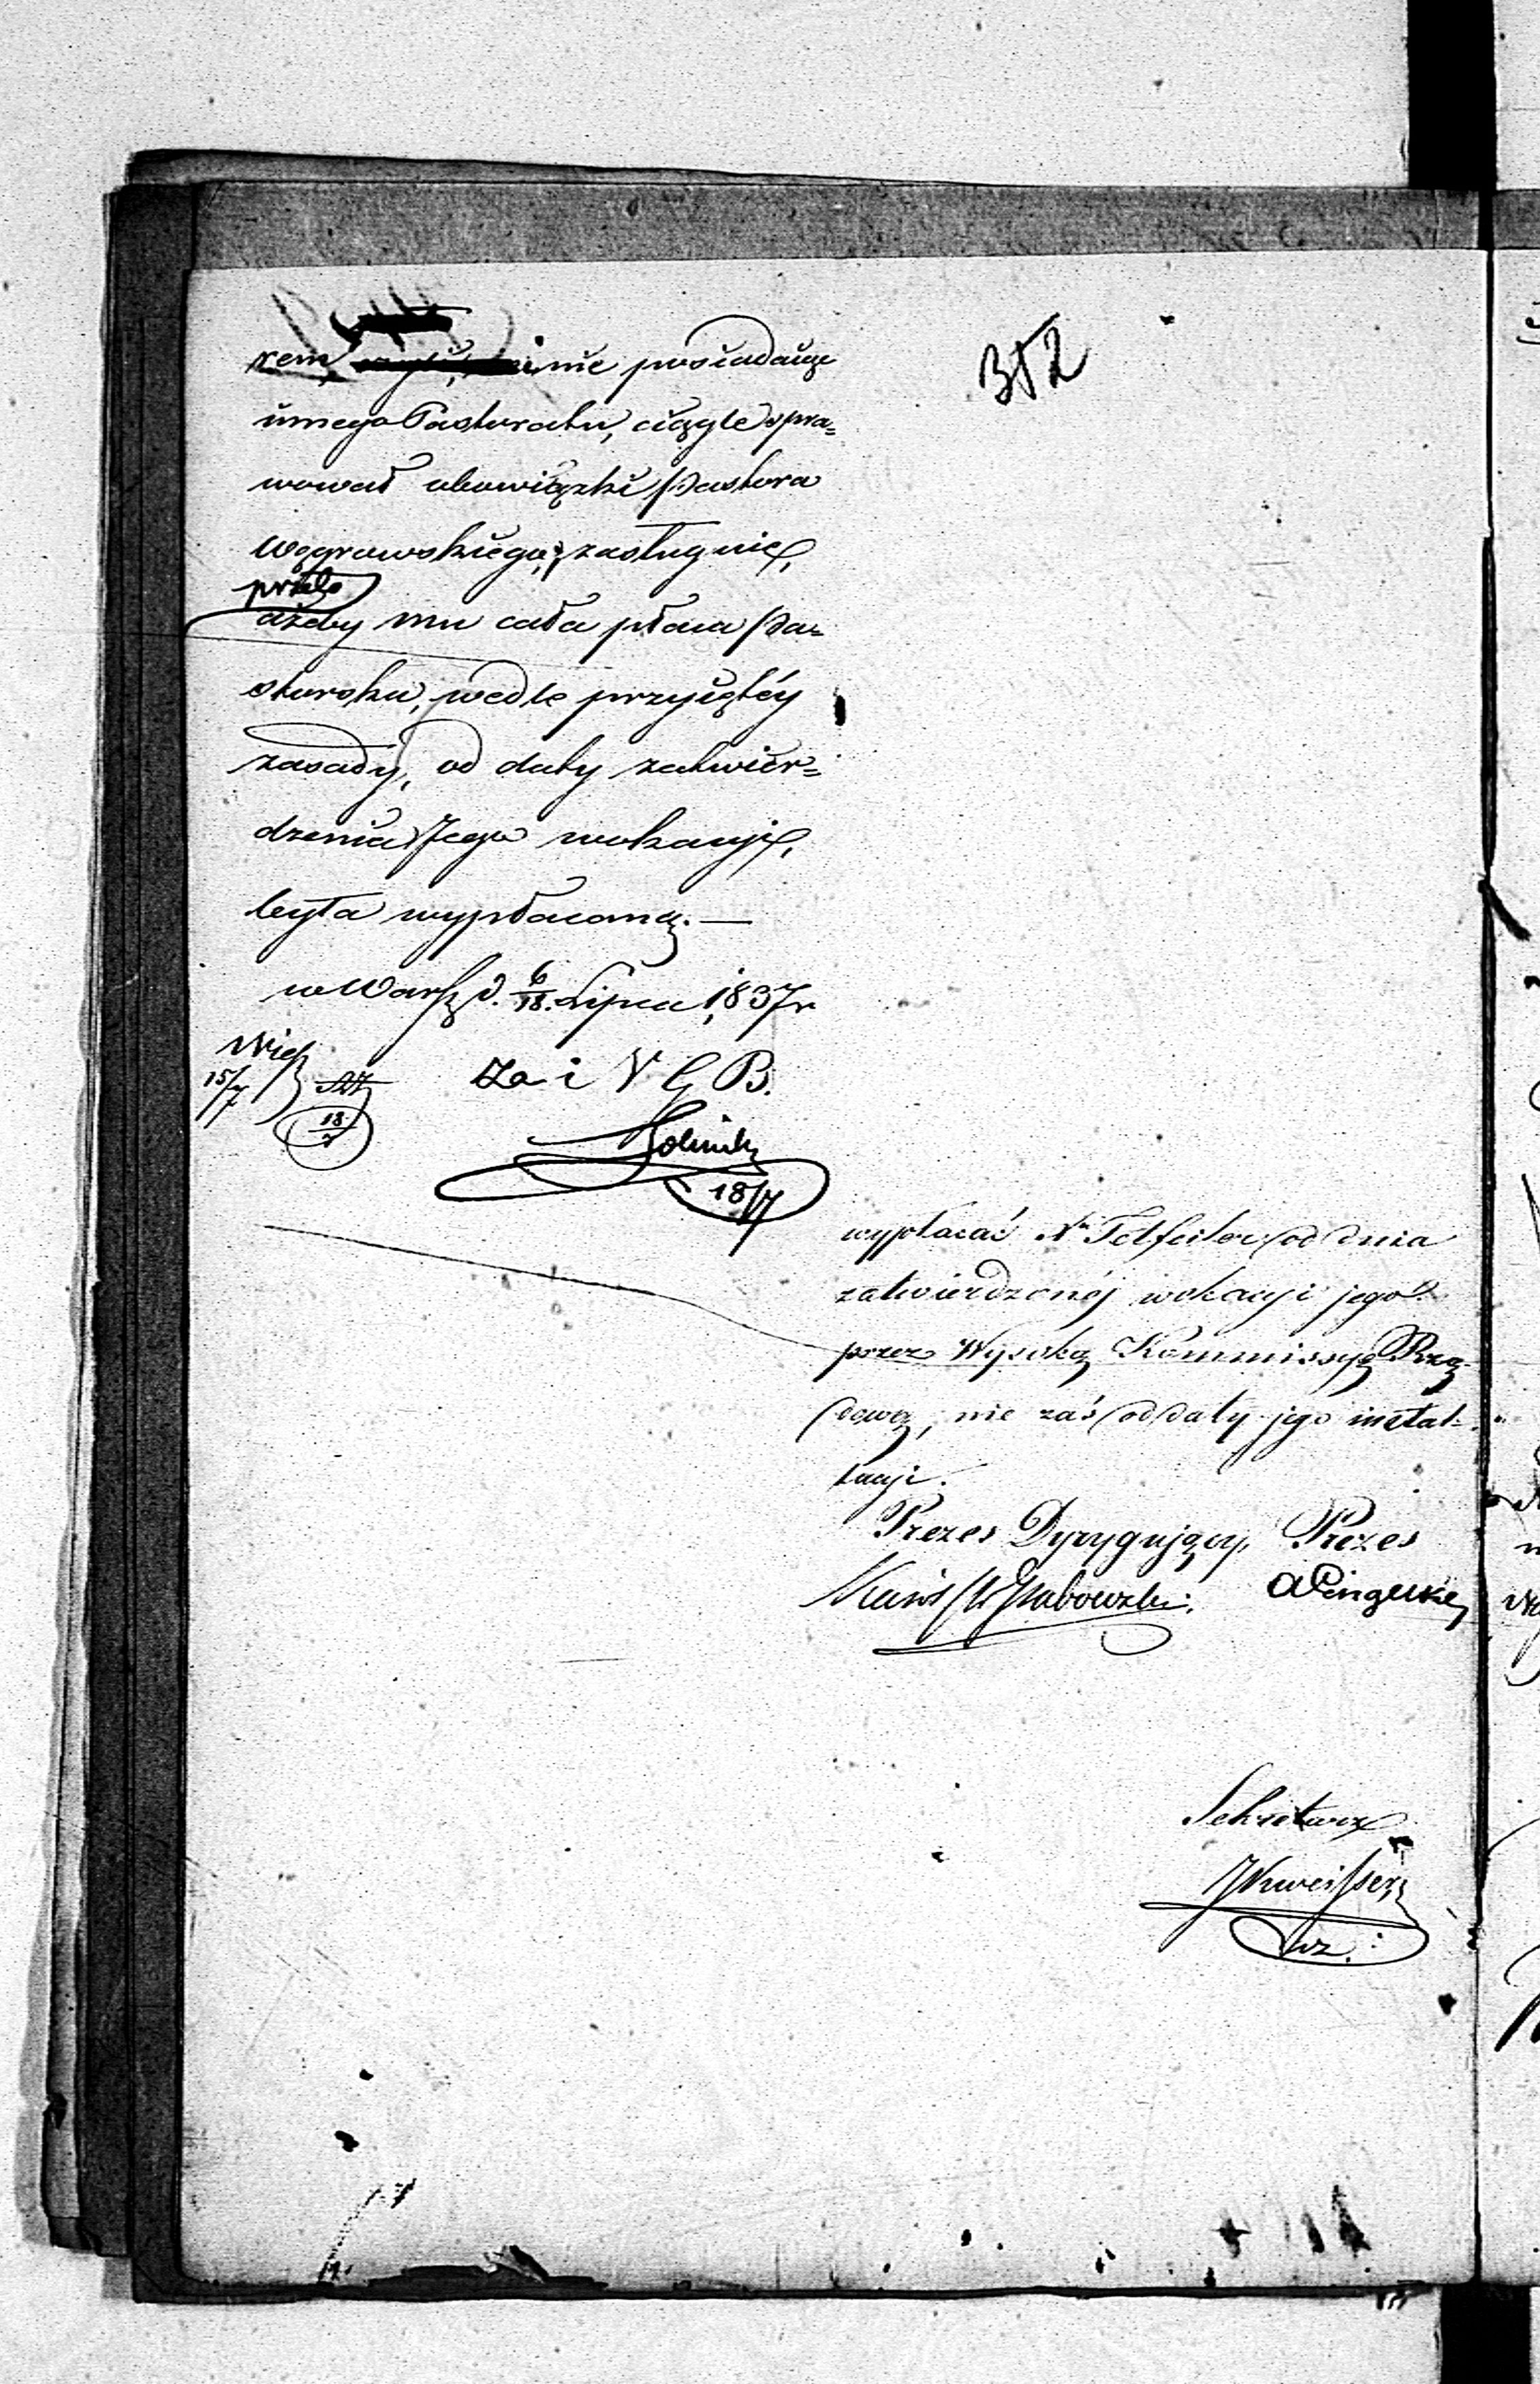 352
rem, nie posiadaiąc
innego Pastoratu, ciągle spra=
wował obowiązki Pastora
Węgrowskiego; zasługuie,
przeto
ażeby mu cała płaca Pa=
storska, wedle przyiętéy
zasady, od daty zatwier=
dzenia Jego wokacyi,
była wypłaconą. —
w Warsz d. 6/18. Lipca 1837 r
15/7
18/7
Za i N G B.
18/7
wypłacać X. Tetfeiler od dnia
zatwierdzonéj wokacyi jego
przez Wysoką Kommissyę Rzą-
dową, nie zaś od daty jego instal-
lacyi.
Prezes Dyrygujący, Prezes
Grabowski.
Sekretarz
wz.